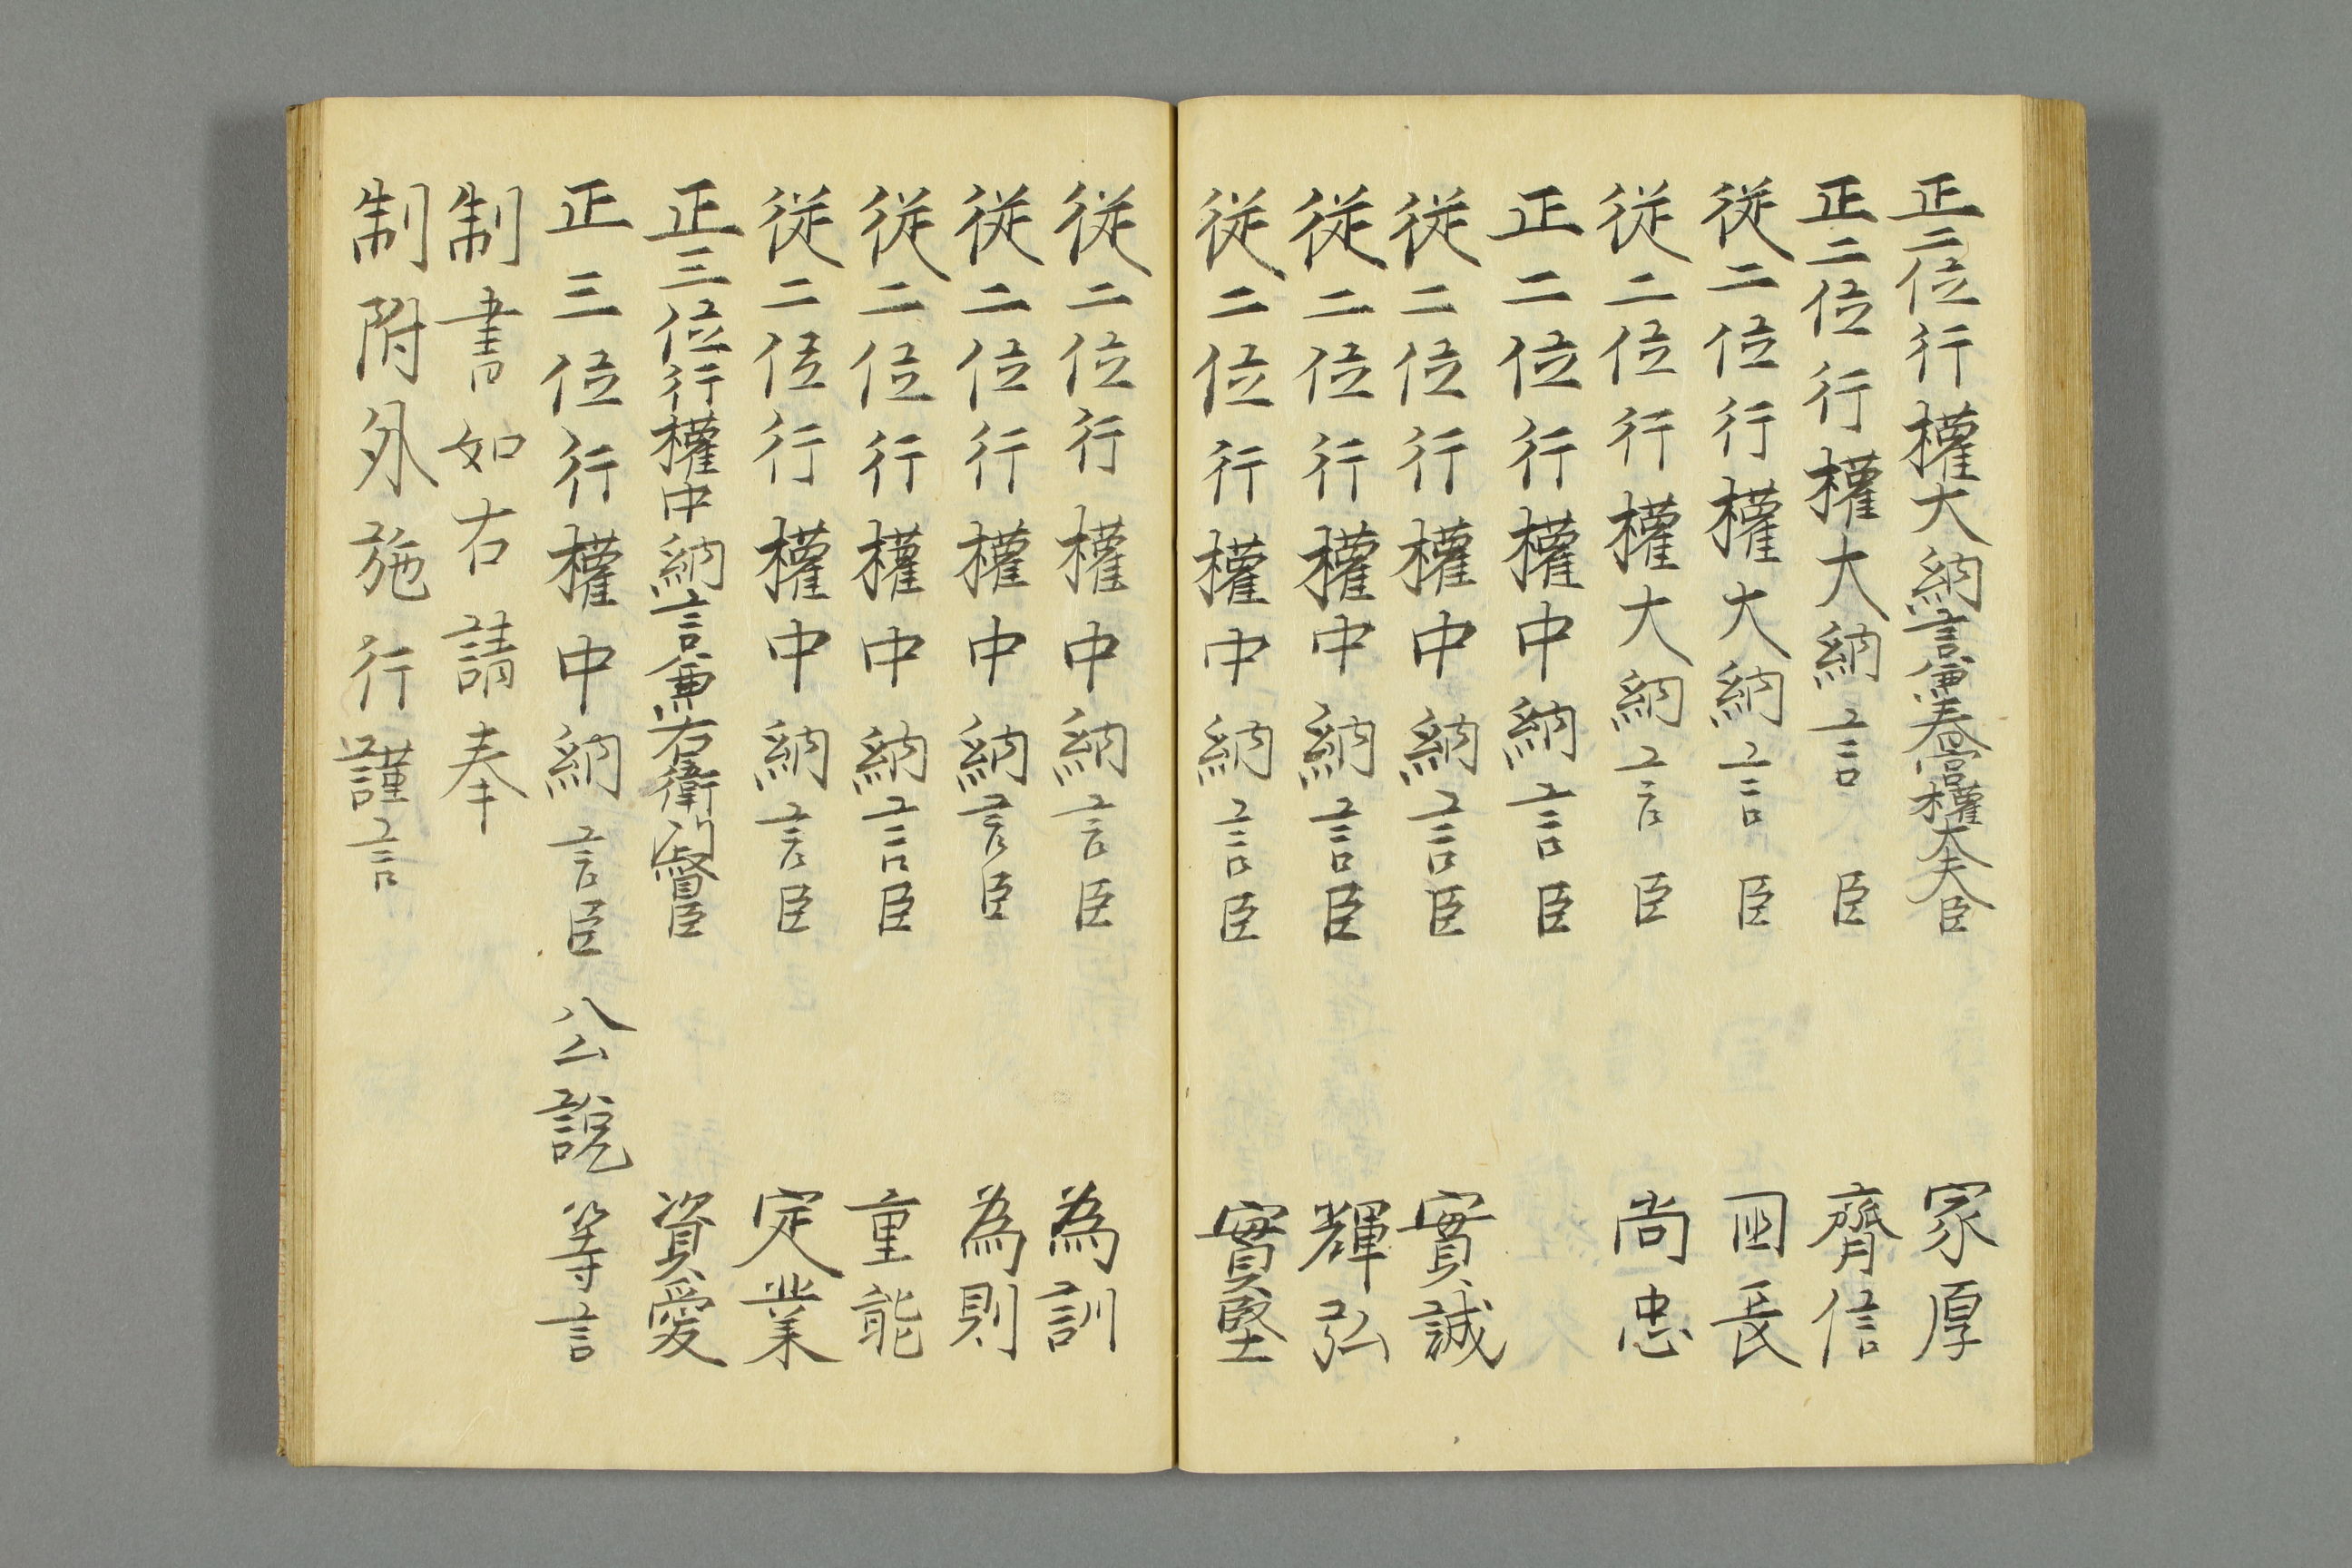 正二位行權大納言兼春宮權大夫臣家厚
正二位行權大納言臣齊信
従二位行權大納言臣国長
従二位行權大納言臣尚忠
正二位行權中納言臣
従二位行權中納言臣實誠
従二位行權中納言臣輝弘
従二位行權中納言臣實堅
従二位行權中納言臣為訓
従二位行權中納言臣為則
従二位行權中納言臣重能
従二位行權中納言臣定業
正三位行權中納言兼右衛門督臣資愛
正三位行權中納言臣公說等言
制書如右請奉
制附外施行謹言